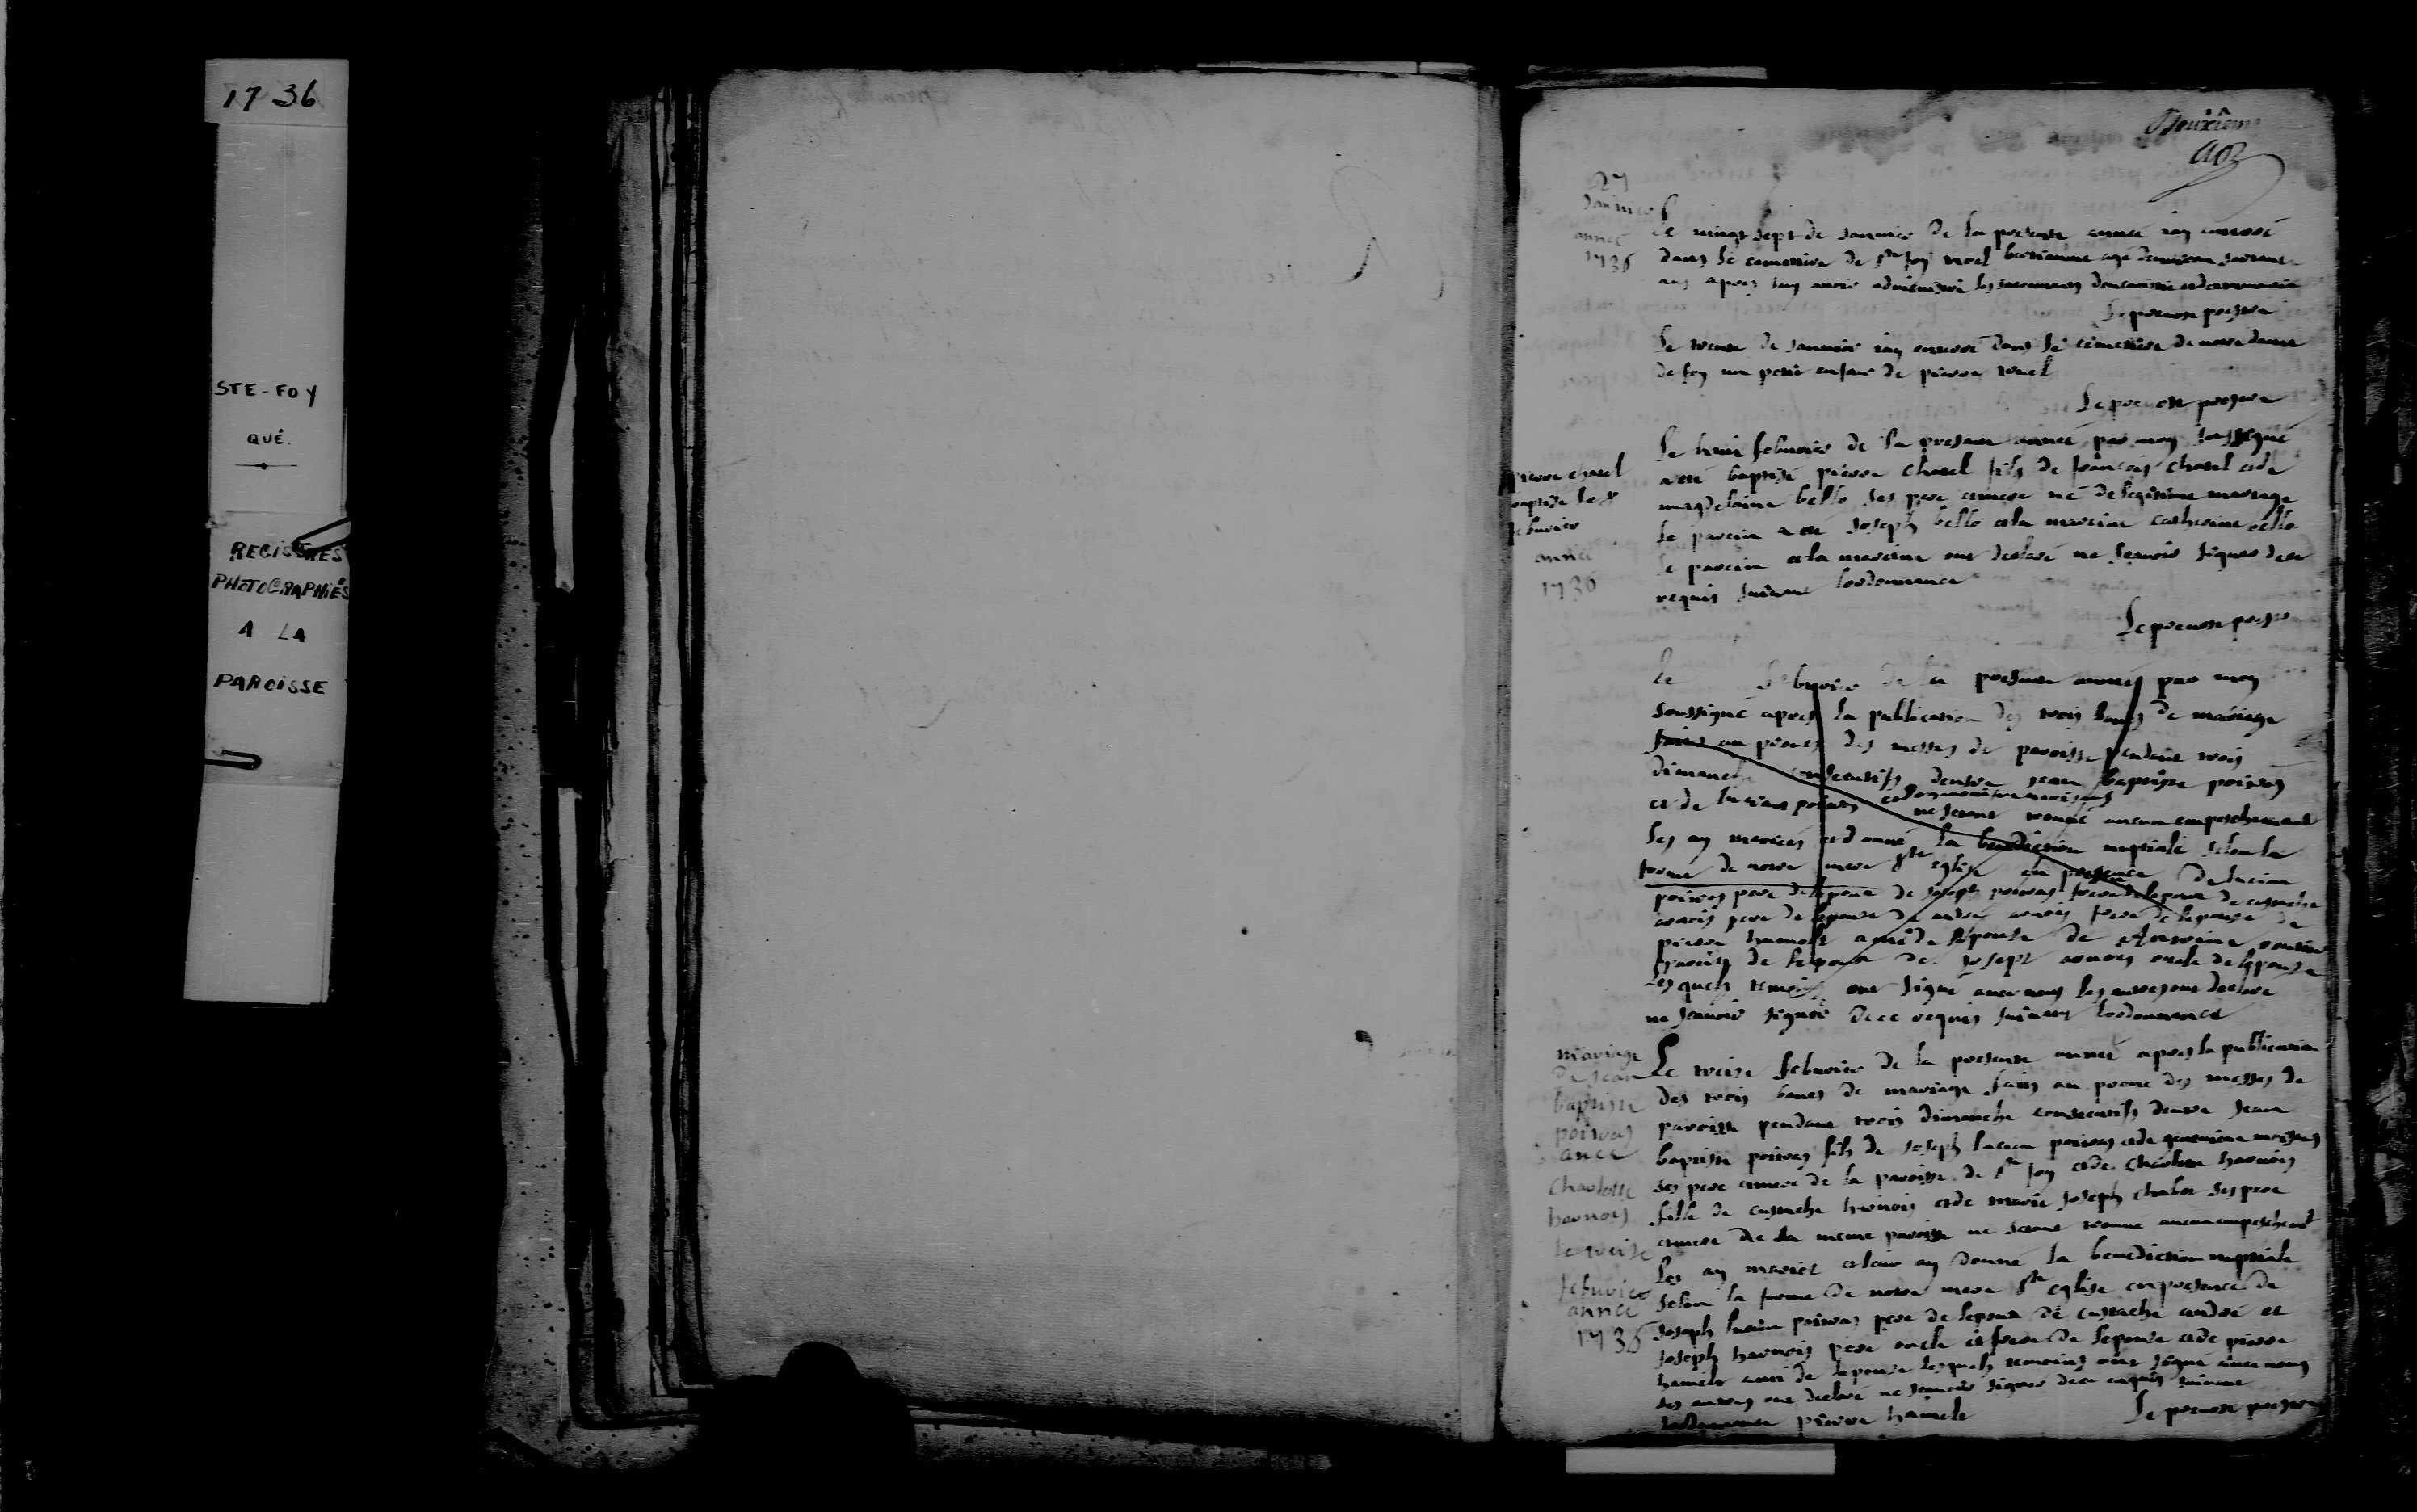 1736
STE-FOY
QUÉ.
REGISTRES
PHOTOGRAPHIÉS
A LA
PAROISSE
Deuxiême
27
Janvier
année
1736
Le vingt sept de Janvier de la presente année iay enterré
dans le cemetiere de Ste foy noel agé denviron soixante
ans apres luy avoir administré les sacremens
Le prevost prestre
Le trente de Janvier iay enterré dans le cimetiere de notre dame
de foy un petit enfant de pierre
Le prevost prestre
pierre charel
baptisé le 8
febvrier
année
1736
Le huit febvrier de la presente année par moy soussigné
a eté baptisé pierre charel fils de françois charel et de
magdelaine bello ses pere et mere né de legitime mariage
le parein a eté Joseph bello et la mareine catherine bello
le parein et la mareine ont declaré ne scavoir signer de ce
requis suivant lordonnance
Le prevost prestre
Le febvrier de la presente année par moy
soussigné apres la publication des trois bancs de mariage
faits au prones des messes de paroisse pendant trois
dimanche consecutifs dentre jean baptiste poitras
et de poitras ne setant trouvé aucun empeschement
les ay mariées et donné la benediction nuptiale selon la
forme de notre mere Ste eglise en presence de lucien
poitras pere de lepoux de Joseph poitras frere de lepoux de eustache
pere de lepouse de andré frere de lepouse de
pierre hamelt ami de lepouse de Antoine
de lepoux de Joseph oncle de lepouse
lesquels temoins ont signé avec nous les autres ont declaré
ne scavoir signer de ce requis suivant lordonnance
mariage
de jean
baptiste
poitras
avec
Charlotte
harnois
le treize
febvrier
année
1736
Le treize febvrier de la presente année apres la publication
des trois bancs de mariage faits au prone des messes de
paroisse pendant trois dimanche consecutifs dentre jean
baptiste poitras fils de Joseph lucien poitras et de
ses pere et mere de la paroisse de Ste foy et de charlotte harnois
fille de eustache harnois et de marie Joseph chabot ses pere
et mere de la meme paroisse ne setant trouvé aucun empeschement
les ay mariez et leur ay donné la benediction nuptiale
selon la forme de notre mere Ste eglise en presence de
Joseph lucien poitras pere de lepoux de eustache andré et
Joseph harnois pere oncle et frere de lepouse et de pierre
hamelt ami de lepouse lesquels temoins ont signé avec nous
les autres ont declaré ne scavoir signer de ce requis suivant
lordonnance pierre hamelt
Le prevost prestre